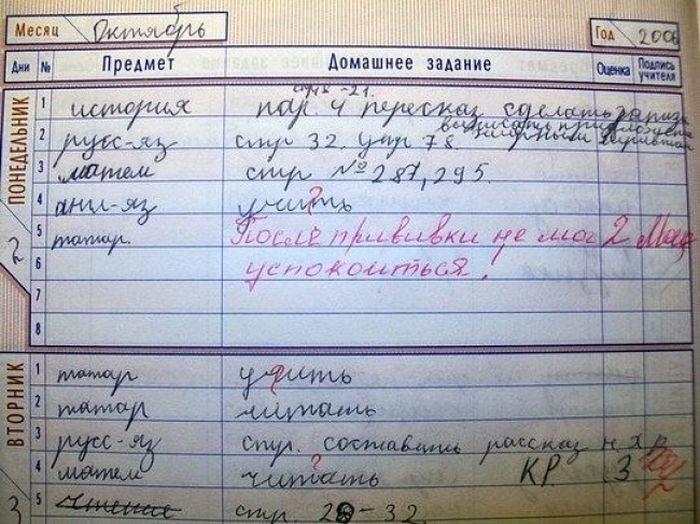 Месяц Октябрь Год 2006
Дни № Предмет Домашнее задание Оценка Подпись учителя
ПОНЕДЕЛЬНИК
2
стр 18-21.
1 история пар. 4 пересказ сделать
2 русс-яз стр 32. упр 78
выписать
3 матем стр № 287, 295.
?
4 англ-яз учить
5 татар. После прививки не мог 2
6 успокоиться!
7
8
ВТОРНИК
3
1 татар учить
2 татар читать
3 русс-яз стр. составить рассказ
?
4 матем читать КР 3
5 чтение стр. 28-32.